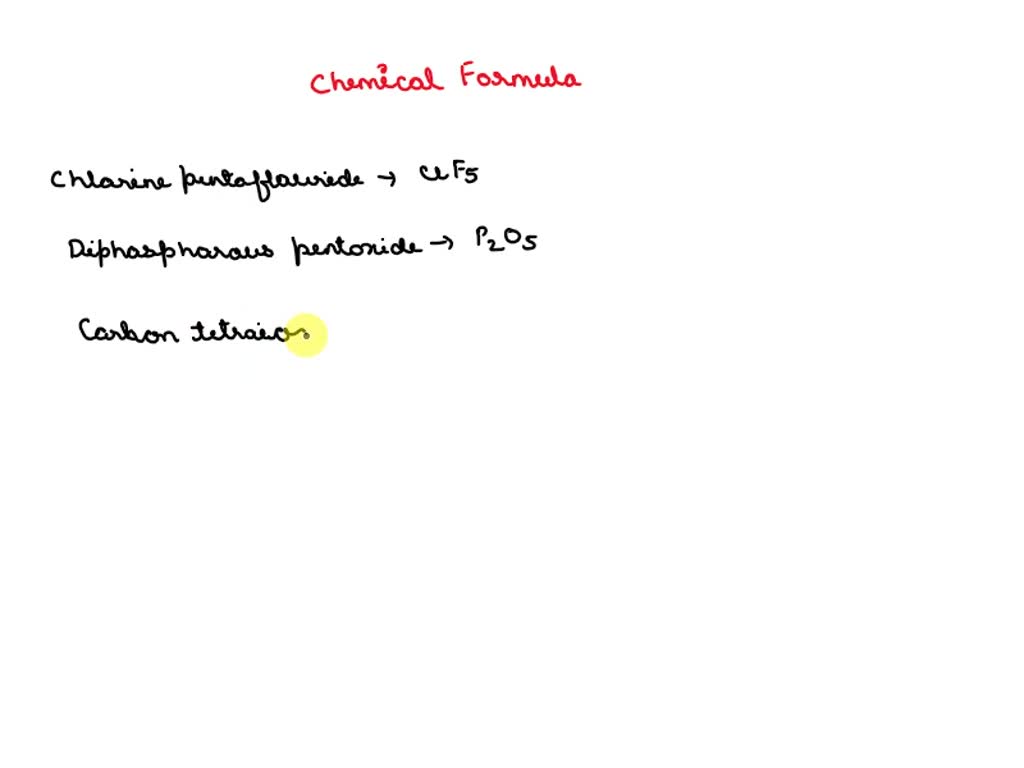 Chemical Formula
Chlorine pentaflouride → ClF5
Diphasphorous pentoxide → P2O5
Carbon tetraio